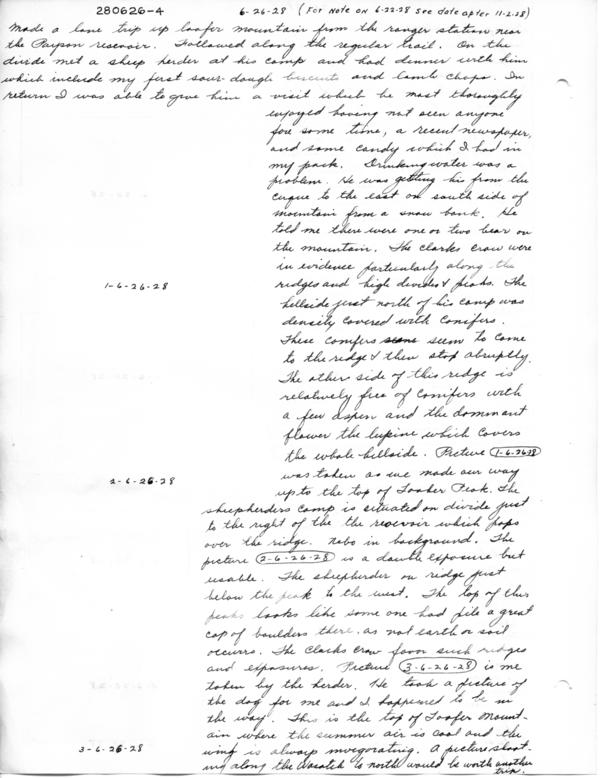 280626-4 6-26-28 (For Note on 6-22-28 see date after 11-2-28)
Made a lone trip up loafer mountain from the ranger station near
the Payson resevoir. Followed along the regular trail. On the
divide met a sheep herder at his camp and had dinner with him
which include my first sour-dough biscuits and lamb chops. In
return I was able to give him a visit which he most thoroughly
enjoyed having not seen anyone
fore some time, a recent newspaper,
and some candy which I had in
my pack. Drinking water was a
problem. He was getting his from the
cirque to the east on south side of
mountain from a snow bank. He
told me there were one or two bear on
the mountain. The clarks crow were
in evidence particularly along the
1-6-26-28 ridges and high divides & peaks. The
hillside just north of his camp was
densily covered with Conifers.
These conifers seem to come
to the ridge & then stop abruptly.
The other side of this ridge is
relatively free of Conifers with
a few aspen and the dominant
flower the lupine which covers
the whole hillside. Picture 1-6-26-28
2-6-26-28 was taken as we made our way
up to the top of Loafer Peak. The
sheepherders camp is situated on divide just
to the right of the the resevoir which pops
over the ridge. Nebo in background. The
picture 2-6-26-28 is a double exposure but
usable. The sheepherder on ridge just
below the peak to the west. The top of this
peaks looks like some one had pile a great
cap of boulders there. as not earth or soil
occurrs. The Clarks Crow favor such ridges
and exposures. Picture 3-6-26-28 is me
taken by the herder. He took a picture of
the dog for me and I happened to be in
the way. This is the top of Loafer Mount-
ain where the summer air is cool and the
3-6-26-28 wing is always invigorating. A picture shoot-
ing along the Wasatch to north would be worth another
trip.